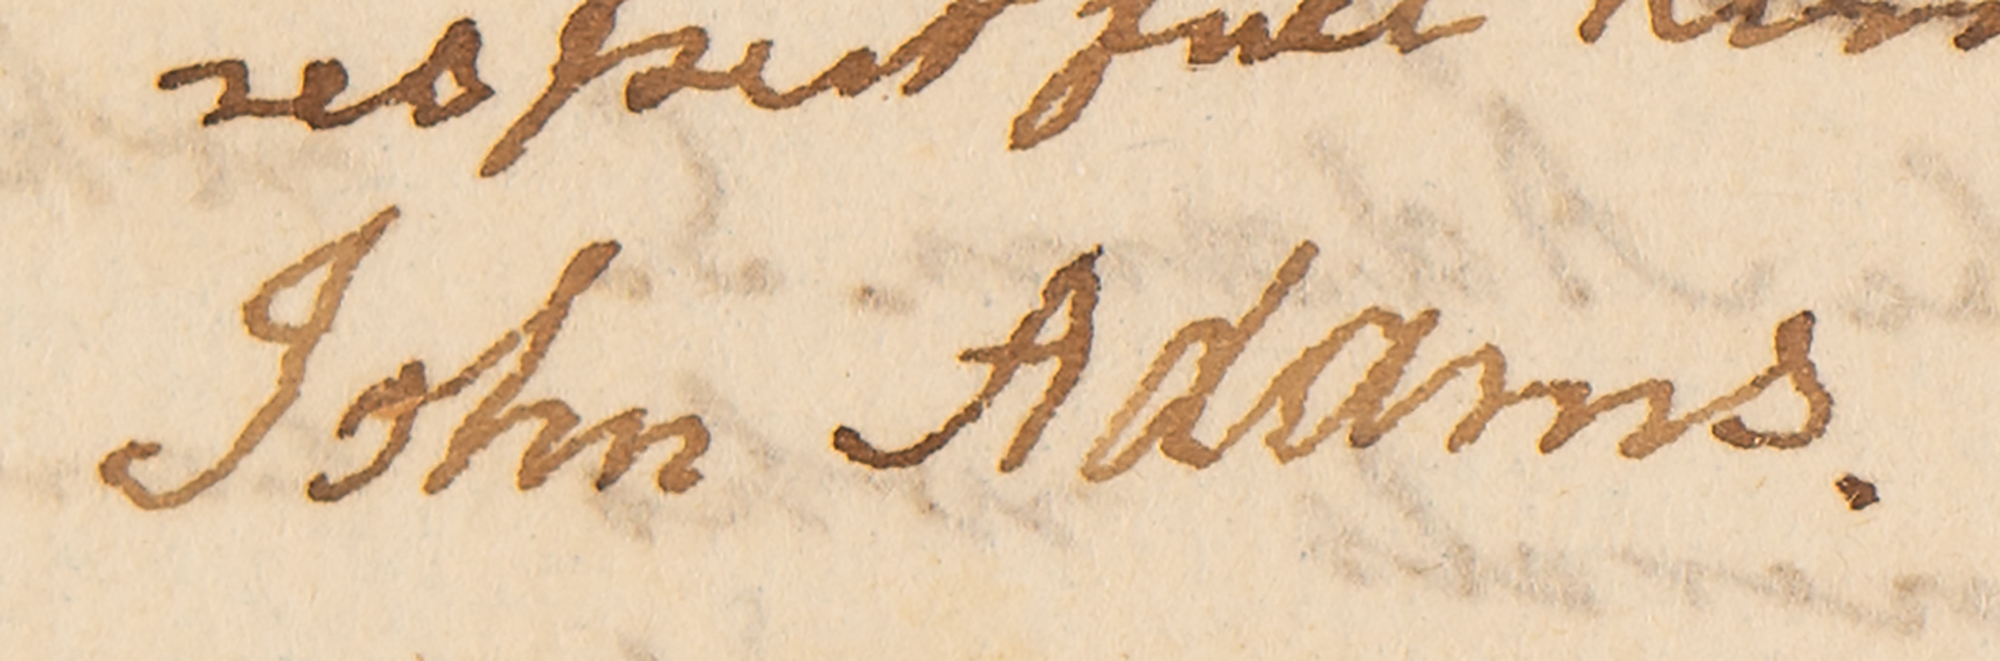 respectfull
John Adams.